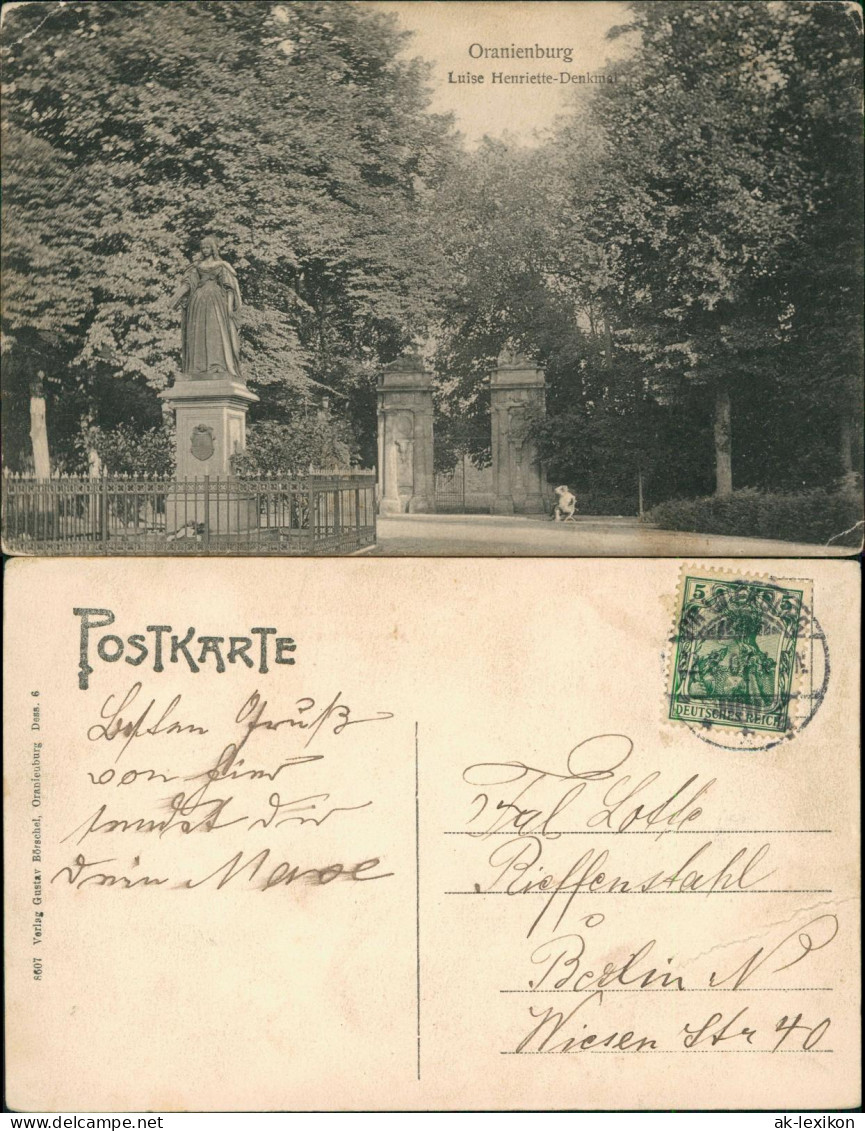 Oranienburg
Luise Henriette-Denkmal
POSTKARTE
5 5
DEUTSCHES REICH
Besten Gruß
von hier
sendet dir
Dein
Frl Lotte
Rieffenstahl
Berlin N
Wiesen Str 40
8607 Verlag Gustav Börschel, Oranienburg Dess. 6
www.delcampe.net
ak-lexikon